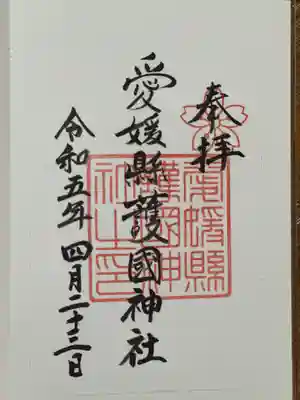 奉拝
愛媛縣護國神社
令和五年 四月二十三日
愛媛縣護國神社之印